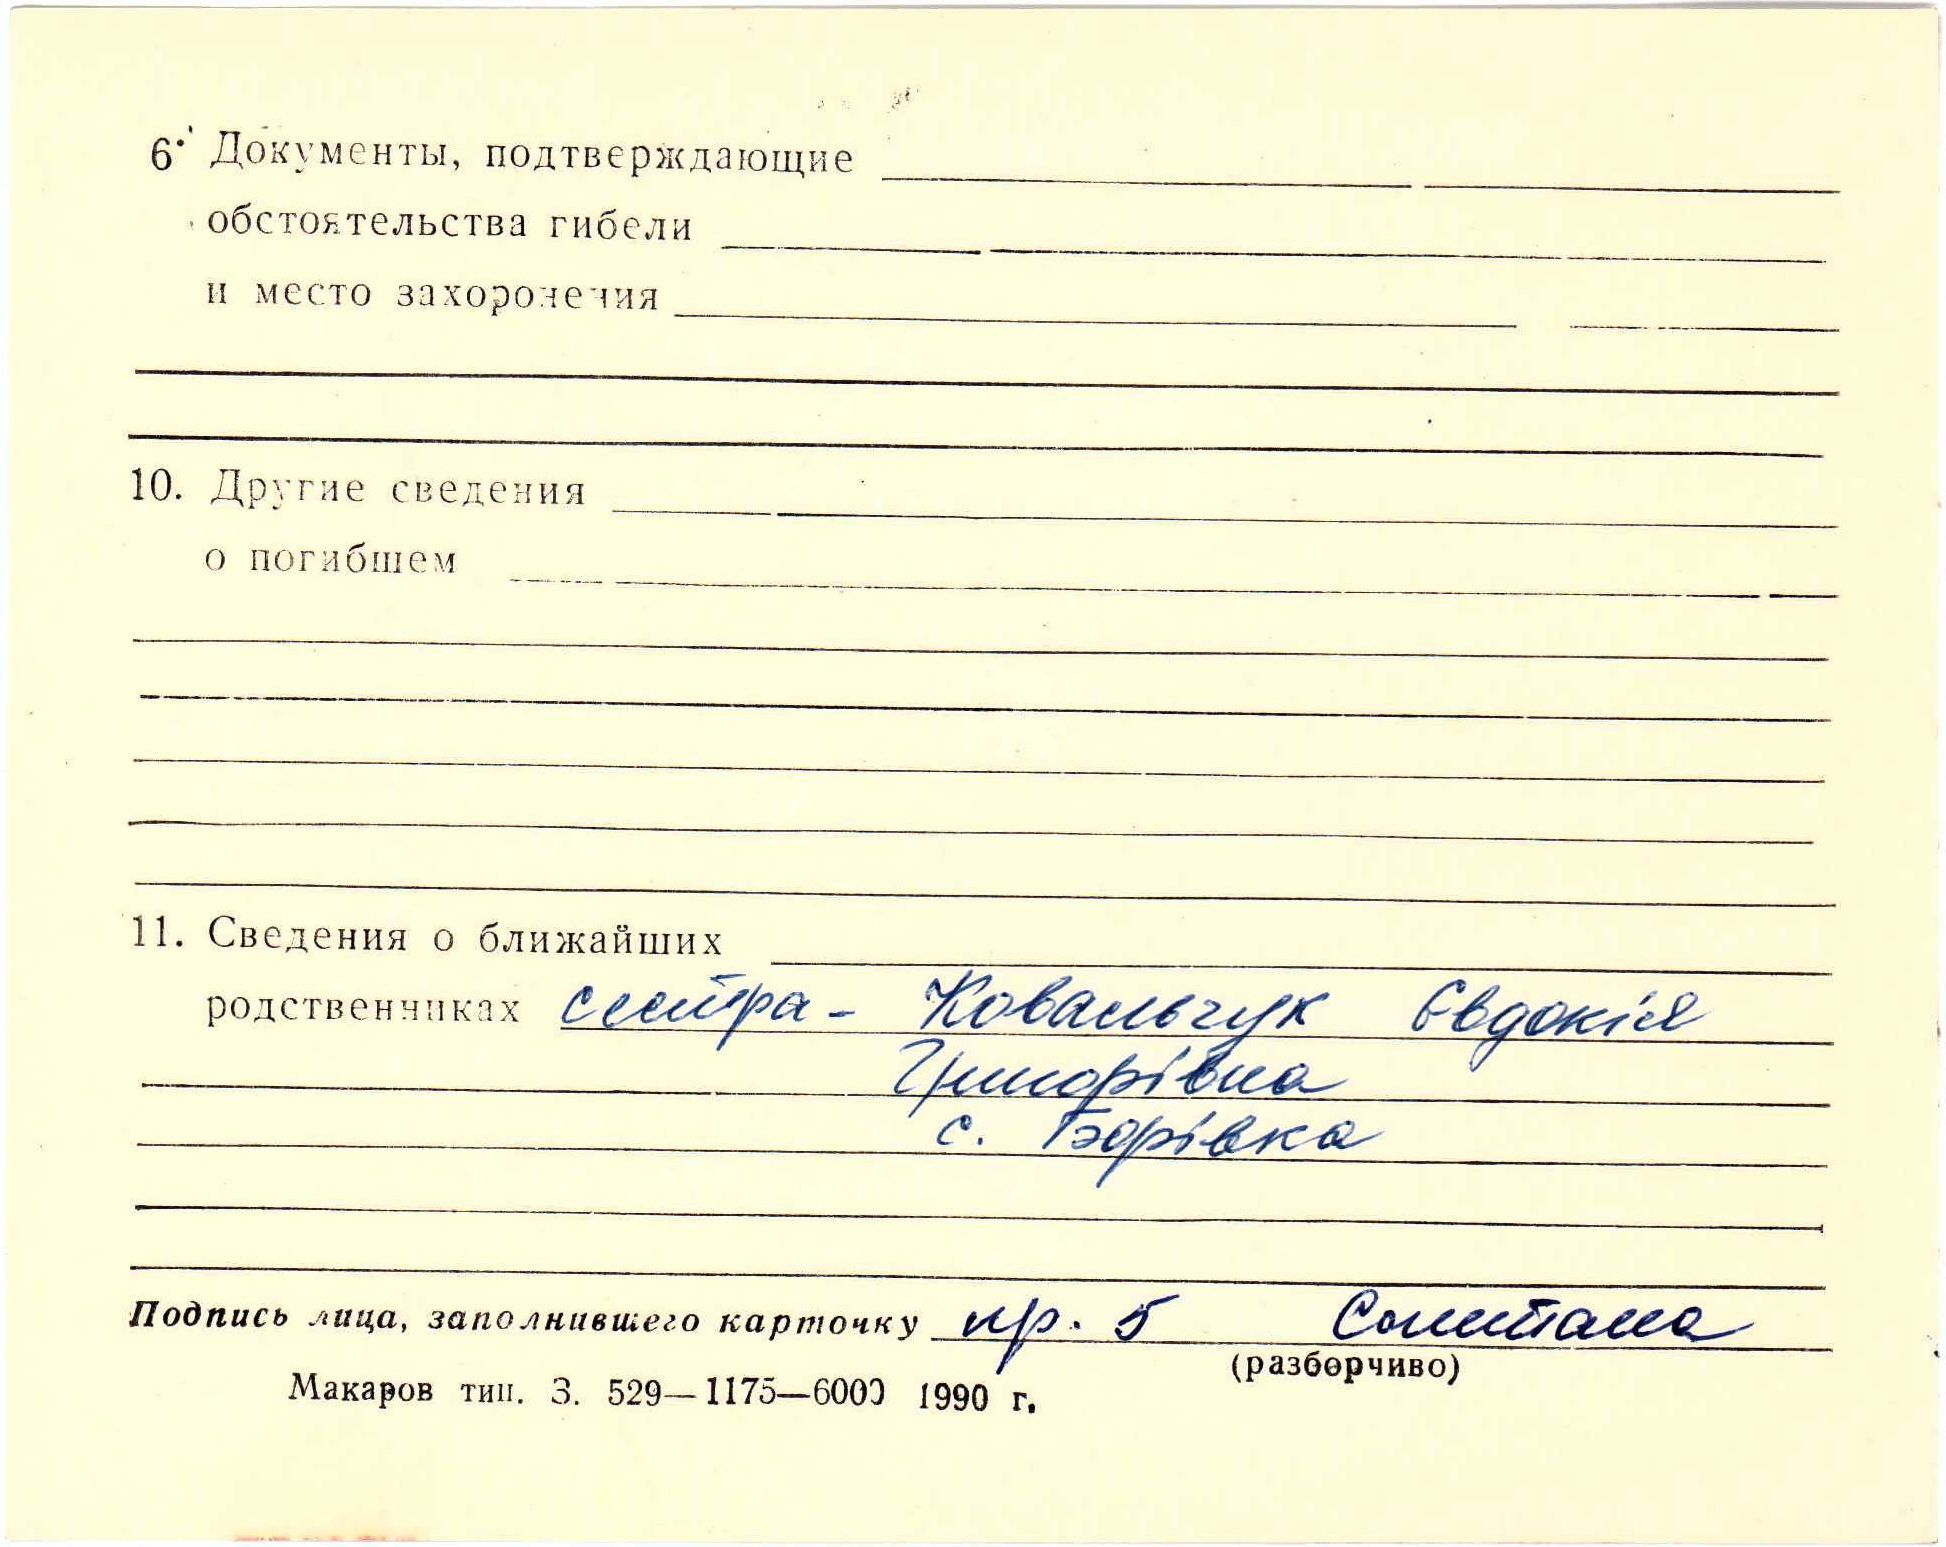 6. Документы, подтверждающие
обстоятельства гибели
и место захоронения
10. Другие сведения
о погибшем
11. Сведения о ближайших
родственниках сестра - Ковальчук Євдокія
Григорівна
с. Борівка
Подпись лица, заполнившего карточку пр. 5
(разборчиво)
Макаров тип. З. 529—1175—6000 1990 г.